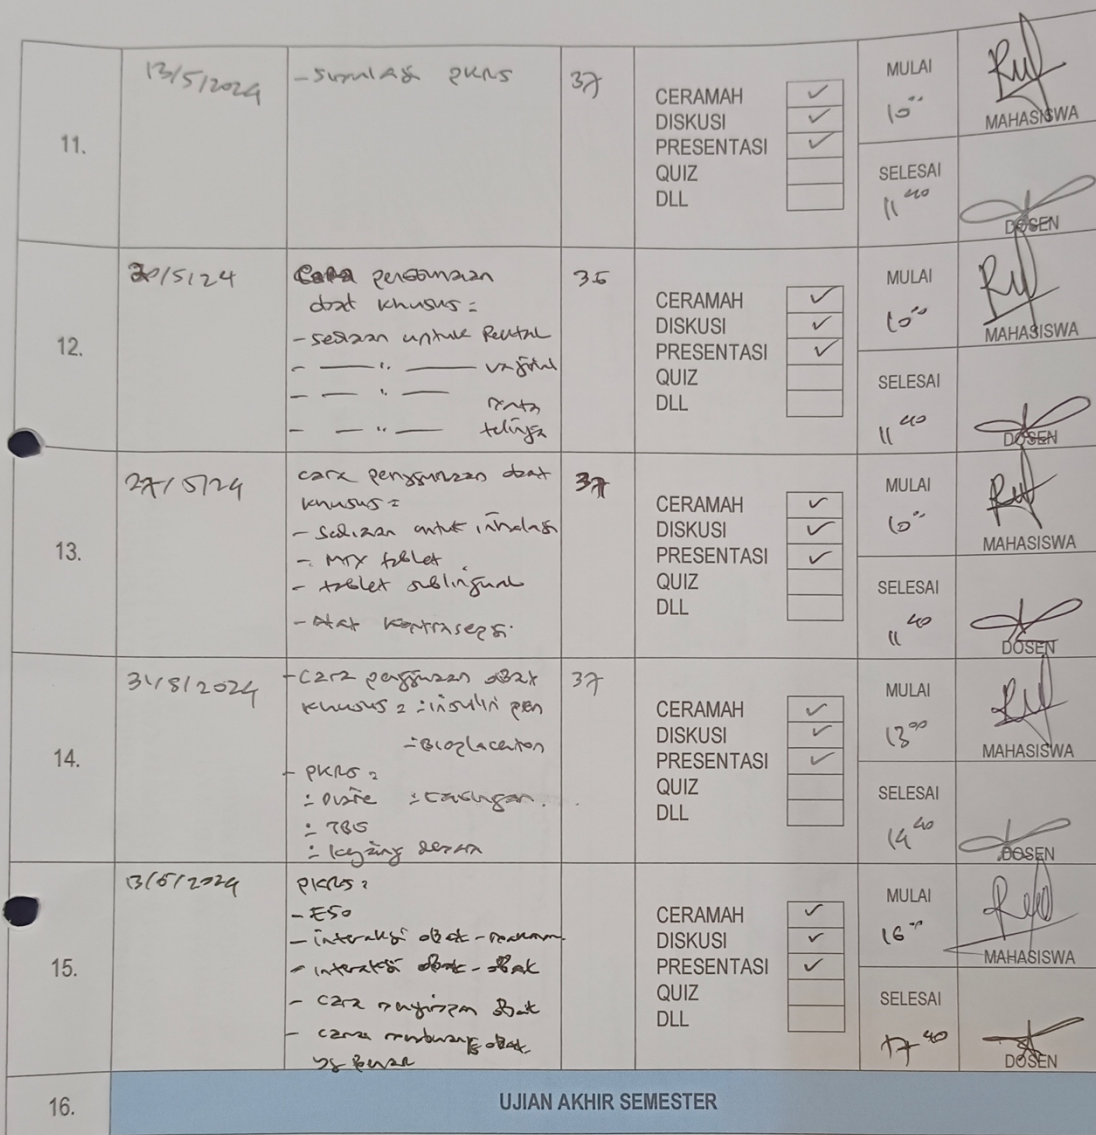 11.
13/5/2024
- Simulasi PKRS
37
CERAMAH ✓
DISKUSI ✓
PRESENTASI ✓
QUIZ
DLL
MULAI
10⁰⁰
MAHASISWA
SELESAI
11⁴⁰
DOSEN
12.
20/5/24
Cara penggunaan
obat khusus :
- sediaan untuk Rektal
- —— " —— vaginal
- —— " ——
mata
- —— " —— telinga
36
CERAMAH ✓
DISKUSI ✓
PRESENTASI ✓
QUIZ
DLL
MULAI
10⁰⁰
MAHASISWA
SELESAI
11⁴⁰
DOSEN
13.
27/5/24
cara penggunaan obat
khusus :
- Sediaan untuk inhalasi
- MTX tablet
- tablet sublingual
- Alat kontrasepsi
37
CERAMAH ✓
DISKUSI ✓
PRESENTASI ✓
QUIZ
DLL
MULAI
10⁰⁰
MAHASISWA
SELESAI
11⁴⁰
DOSEN
14.
- Cara penggunaan obat
khusus : - insulin pen
- Bioplacenton
- PKRS :
- Diare - Cacingan
- TBC
- Kejang demam
37
CERAMAH ✓
DISKUSI ✓
PRESENTASI ✓
QUIZ
DLL
MULAI
13⁰⁰
MAHASISWA
SELESAI
14⁴⁰
DOSEN
15.
PKRS :
- ESO
- interaksi obat - makanan
- interaksi obat - obat
- cara menyimpan obat
- cara membuang obat
yg Benar
CERAMAH ✓
DISKUSI ✓
PRESENTASI ✓
QUIZ
DLL
MULAI
16⁰⁰
MAHASISWA
SELESAI
17⁴⁰
DOSEN
16.
UJIAN AKHIR SEMESTER